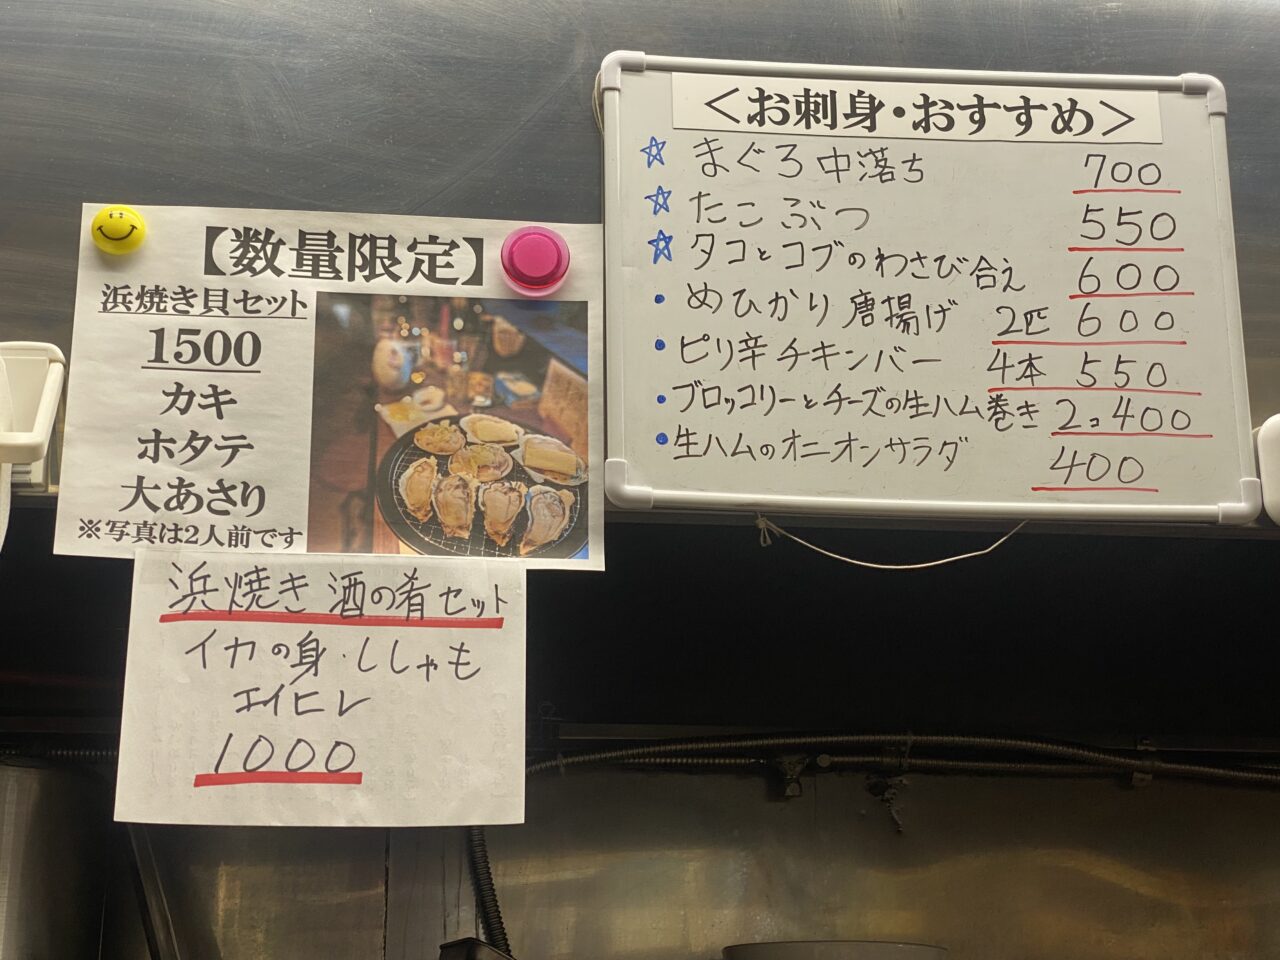 【数量限定】
浜焼き貝セット
1500
カキ
ホタテ
大あさり
※写真は2人前です
浜焼き 酒の肴セット
イカの身・ししゃも
エイヒレ
1000
＜お刺身・おすすめ＞
☆ まぐろ中落ち 700
☆ たこぶつ 550
☆ タコとコブのわさび合え 600
・めひかり唐揚げ 2匹 600
・ピリ辛チキンバー 4本 550
・ブロッコリーとチーズの生ハム巻き 2コ 400
・生ハムのオニオンサラダ 400